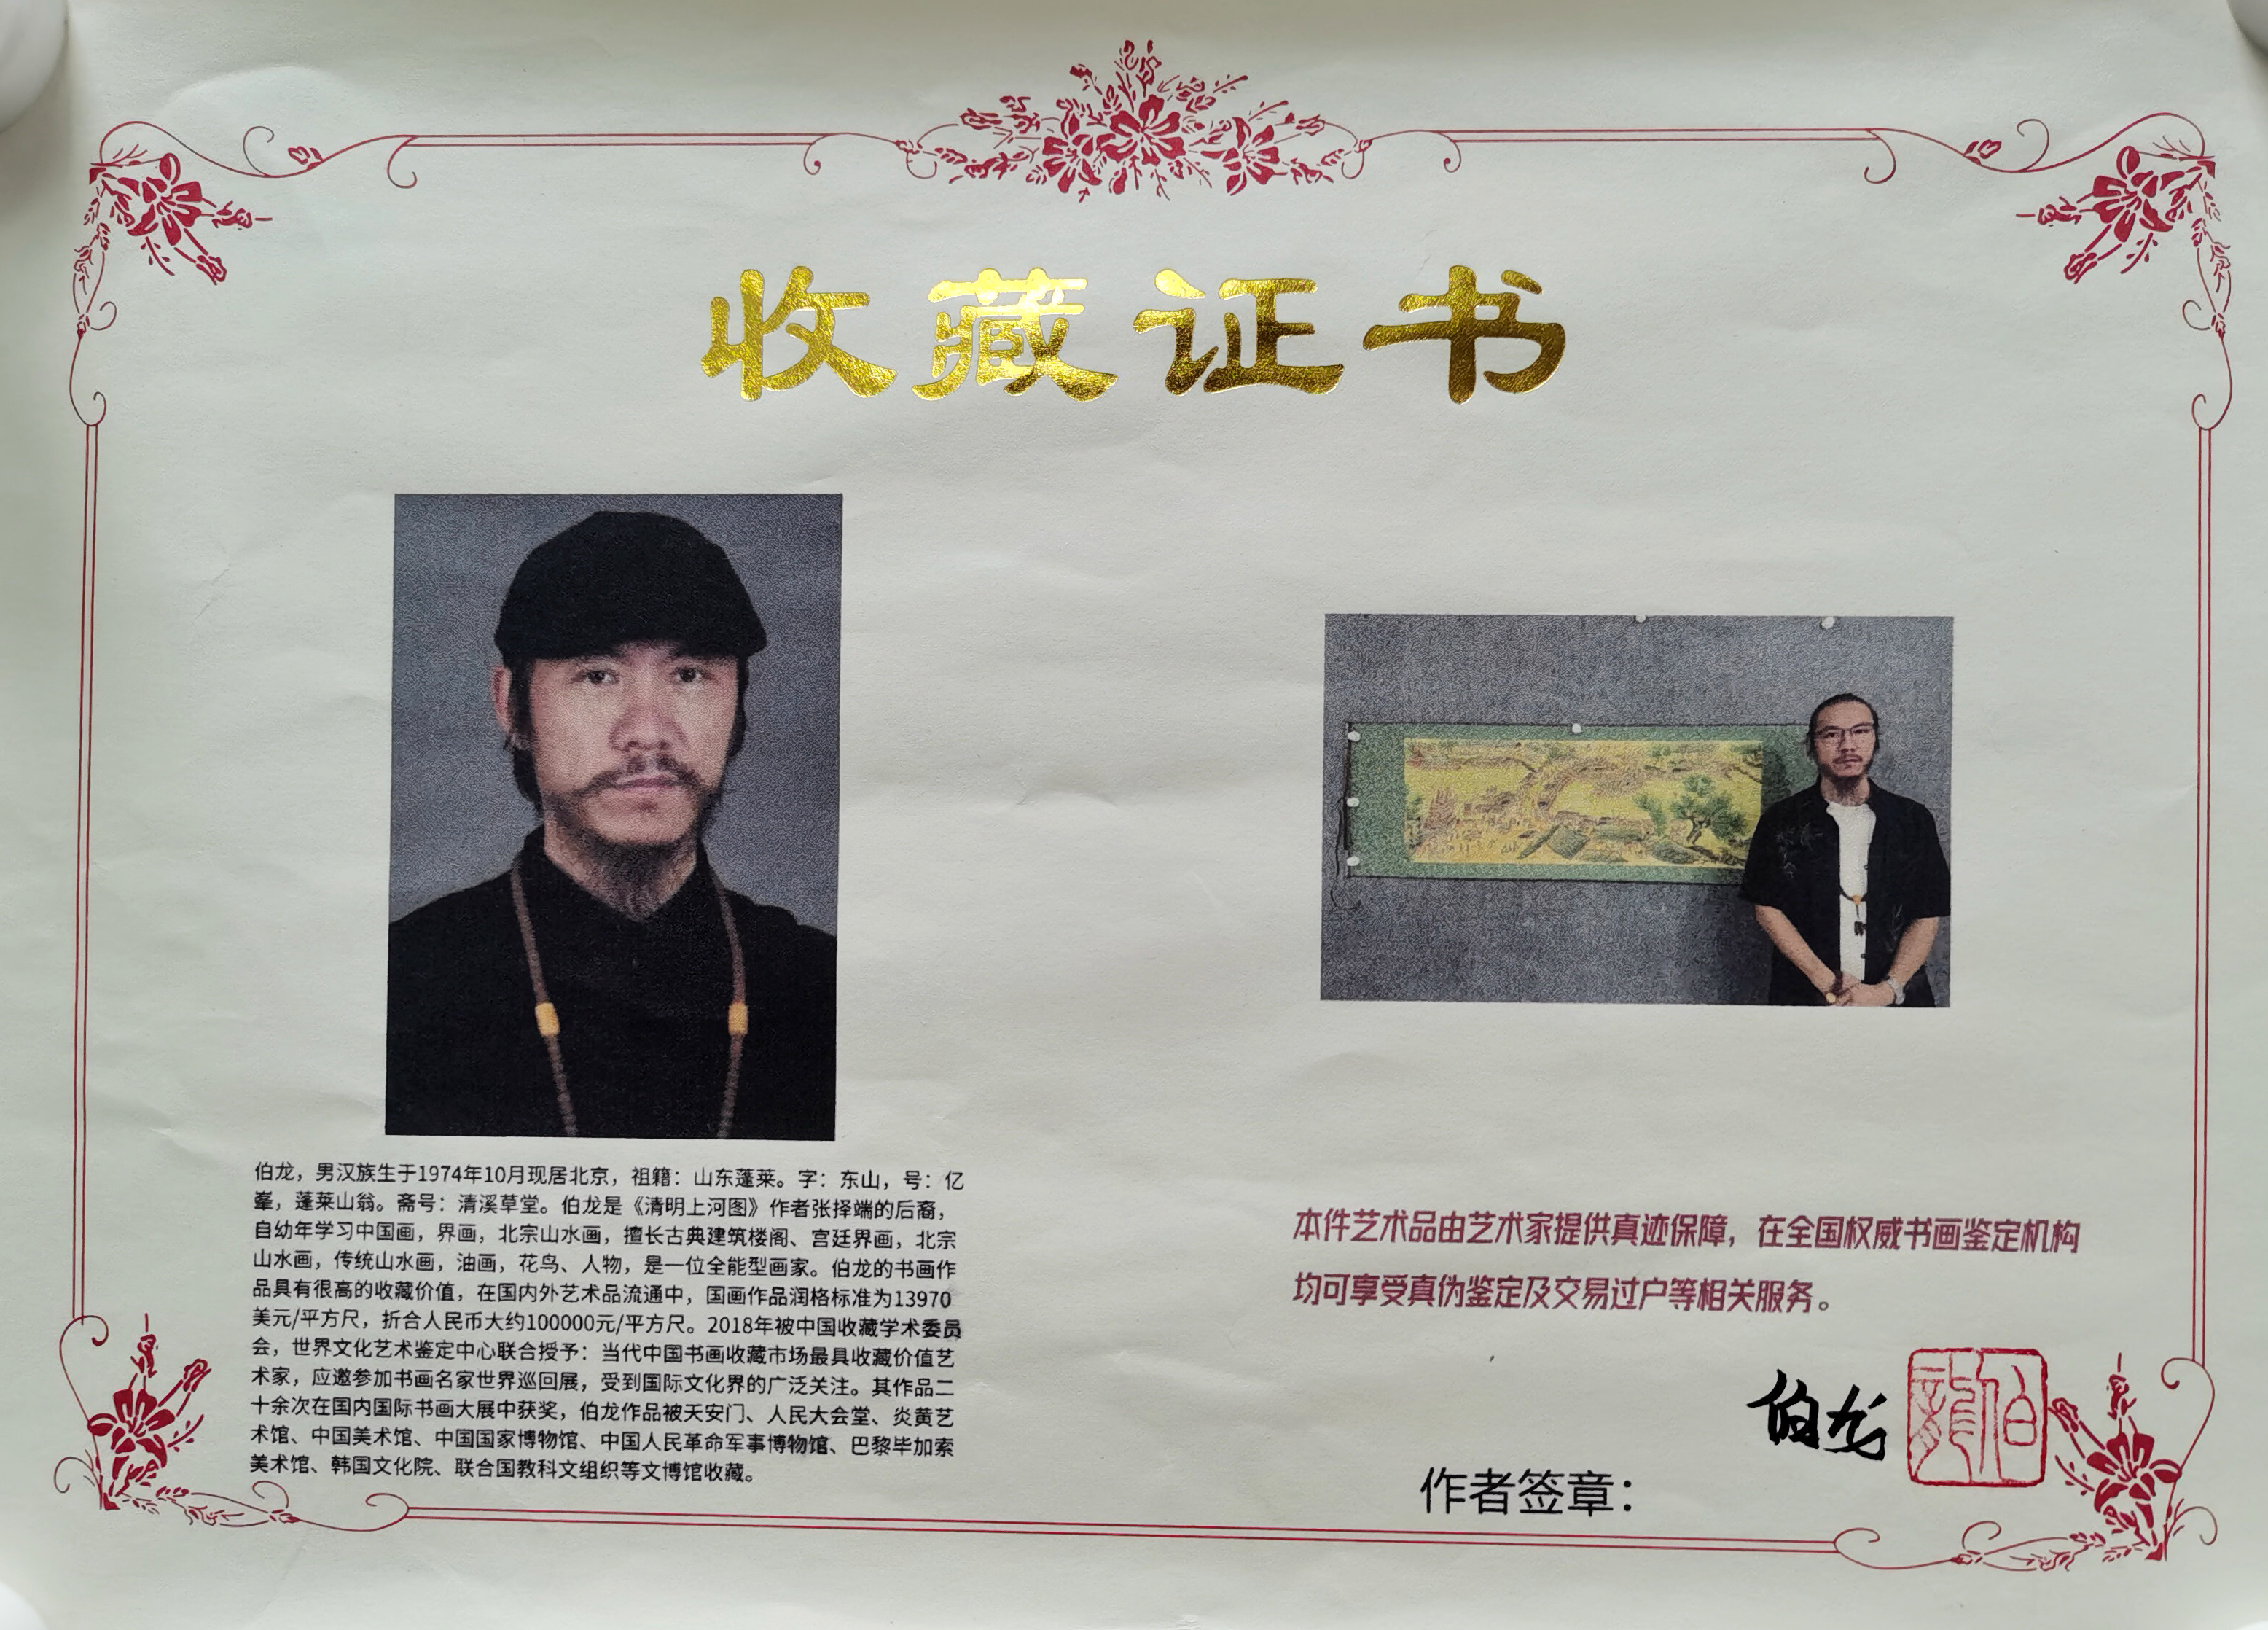 收藏证书
伯龙，男汉族生于1974年10月现居北京，祖籍：山东蓬莱。字：东山，号：亿
峯，蓬莱山翁。斋号：清溪草堂。伯龙是《清明上河图》作者张择端的后裔，
自幼年学习中国画，界画，北宗山水画，擅长古典建筑楼阁、宫廷界画，北宗
山水画，传统山水画，油画，花鸟、人物，是一位全能型画家。伯龙的书画作
品具有很高的收藏价值，在国内外艺术品流通中，国画作品润格标准为13970
美元/平方尺，折合人民币大约100000元/平方尺。2018年被中国收藏学术委员
会，世界文化艺术鉴定中心联合授予：当代中国书画收藏市场最具收藏价值艺
术家，应邀参加书画名家世界巡回展，受到国际文化界的广泛关注。其作品二
十余次在国内国际书画大展中获奖，伯龙作品被天安门、人民大会堂、炎黄艺
术馆、中国美术馆、中国国家博物馆、中国人民革命军事博物馆、巴黎毕加索
美术馆、韩国文化院、联合国教科文组织等文博馆收藏。
本件艺术品由艺术家提供真迹保障，在全国权威书画鉴定机构
均可享受真伪鉴定及交易过户等相关服务。
作者签章：
伯龙
伯龍